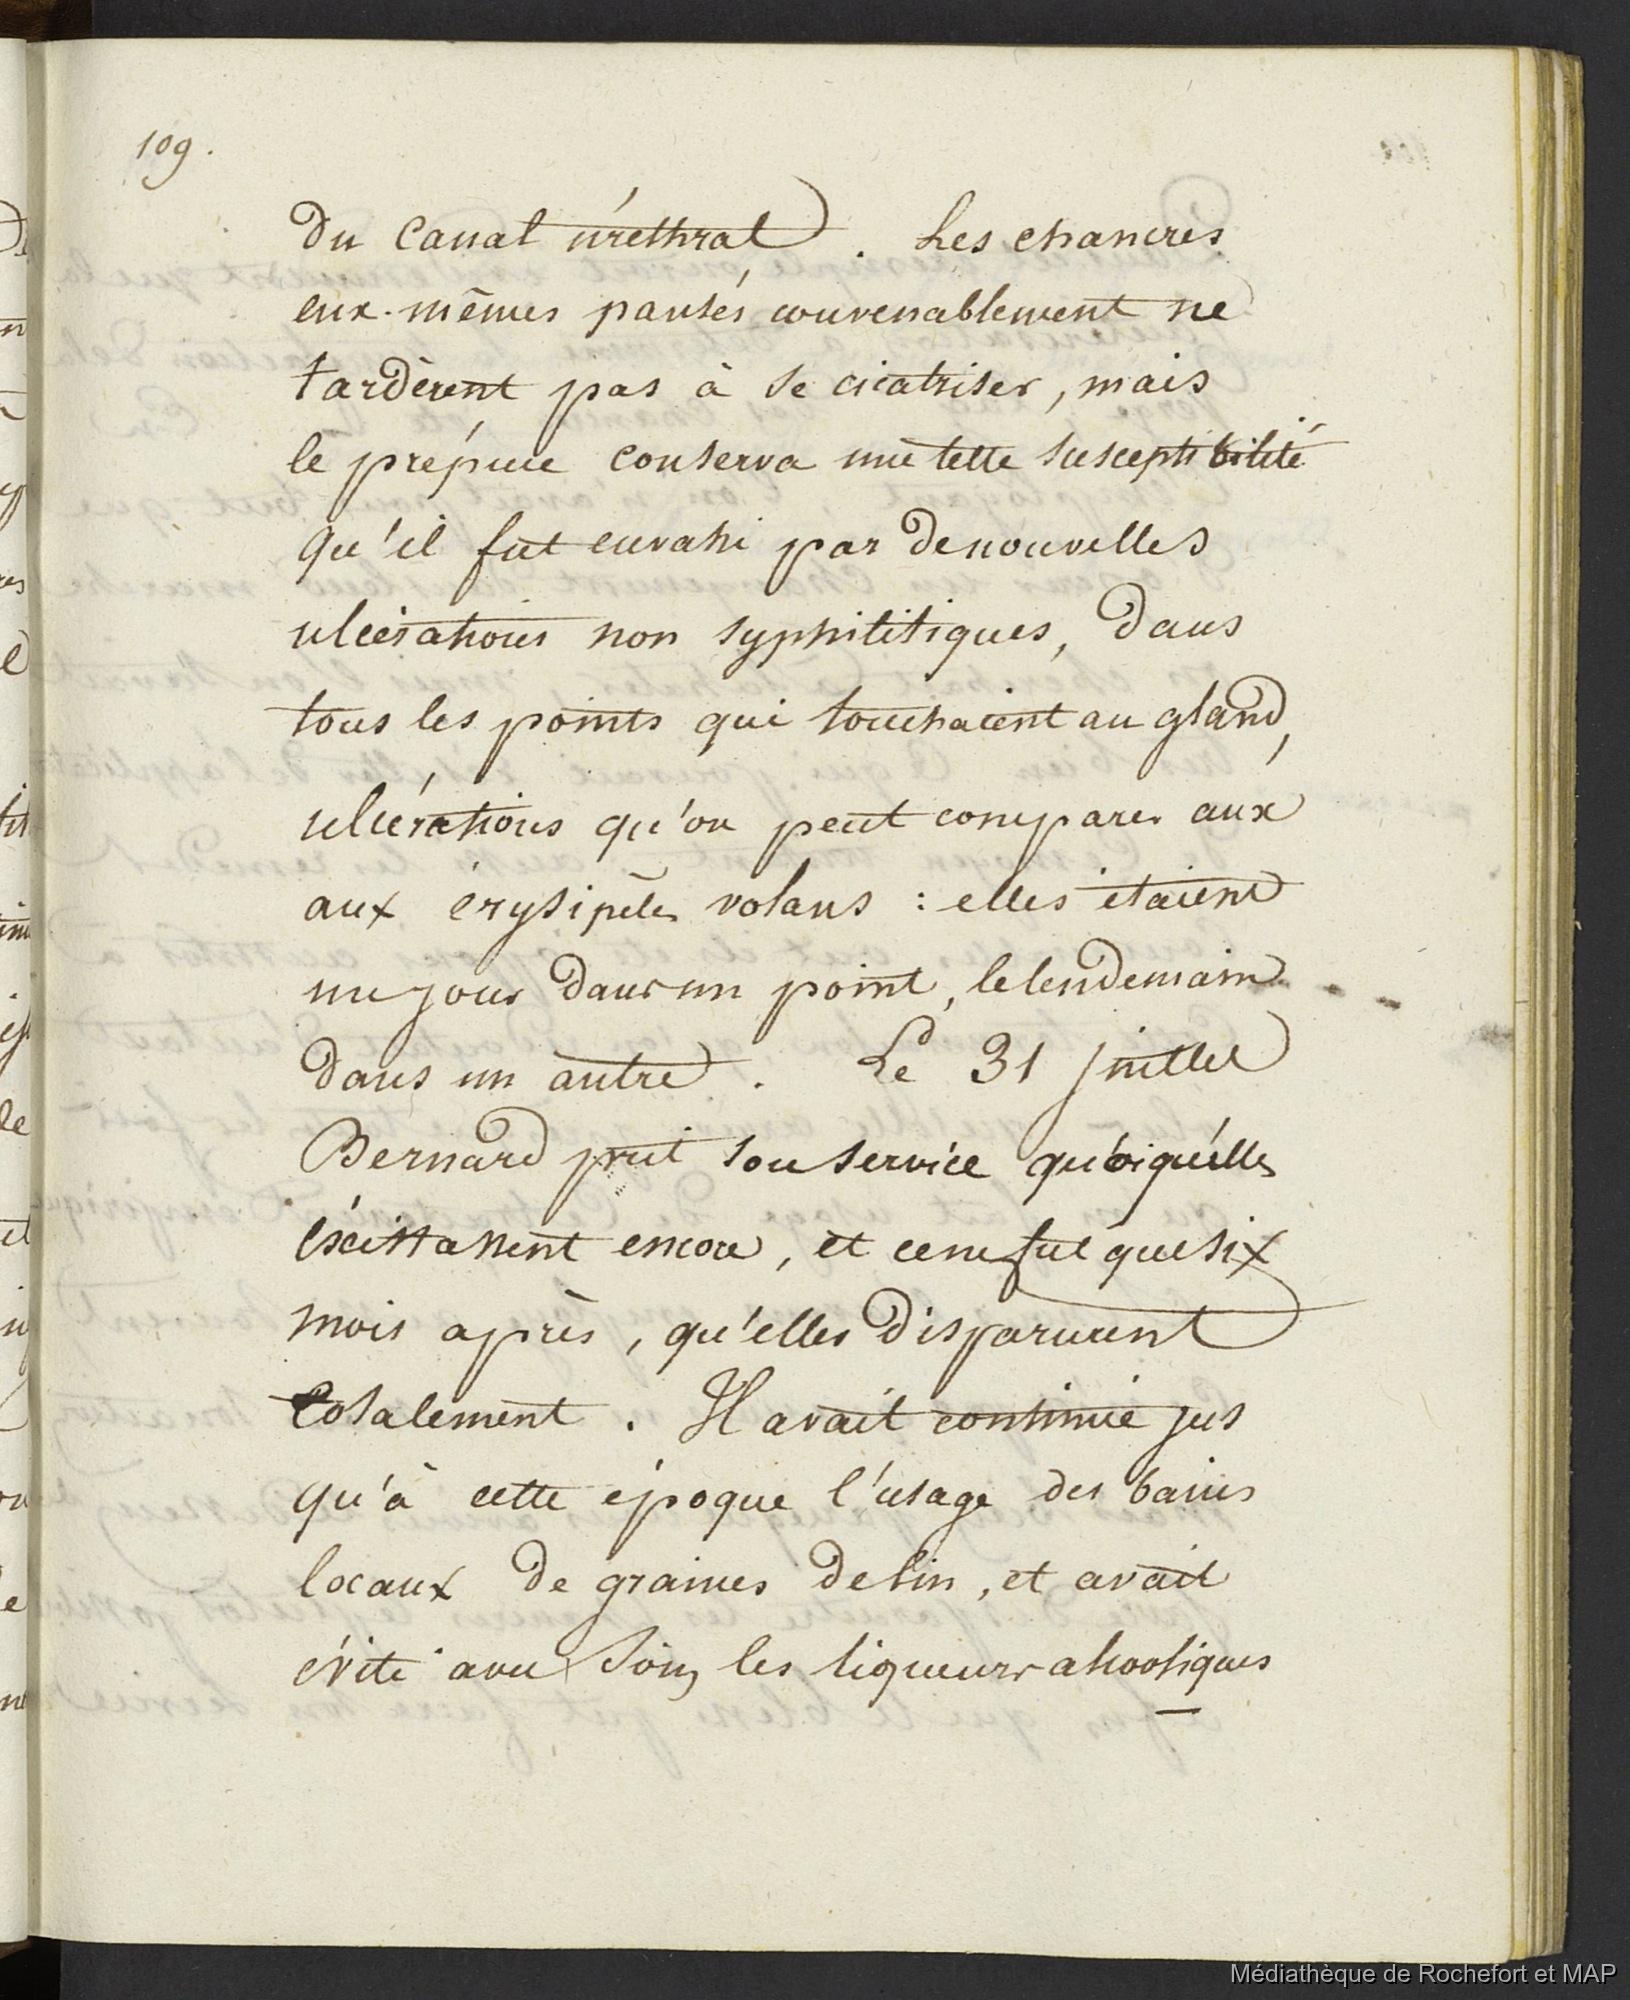 109.
du canal uréthral. Les chancres
eux-mêmes pansés convenablement ne
tardèrent pas à se cicatriser, mais
le prépuce conserva une telle susceptibilité
qu'il fut envahi par de nouvelles
ulcérations non syphilitiques, dans
tous les points qui touchaient au gland,
ulcérations qu'on peut comparer aux
aux érysipèles volans : elles étaient
un jour dans un point, le lendemain
dans un autre. Le 31 juillet
Bernard prit son service quoiqu'elles
existassent encore, et ce ne fut que six
mois après, qu'elles disparurent
totalement. Il avait continué jus
qu'à cette époque l'usage des bains
locaux de graines de lin, et avait
évité avec soin les liqueurs alcooliques
Médiathèque de Rochefort et MAP